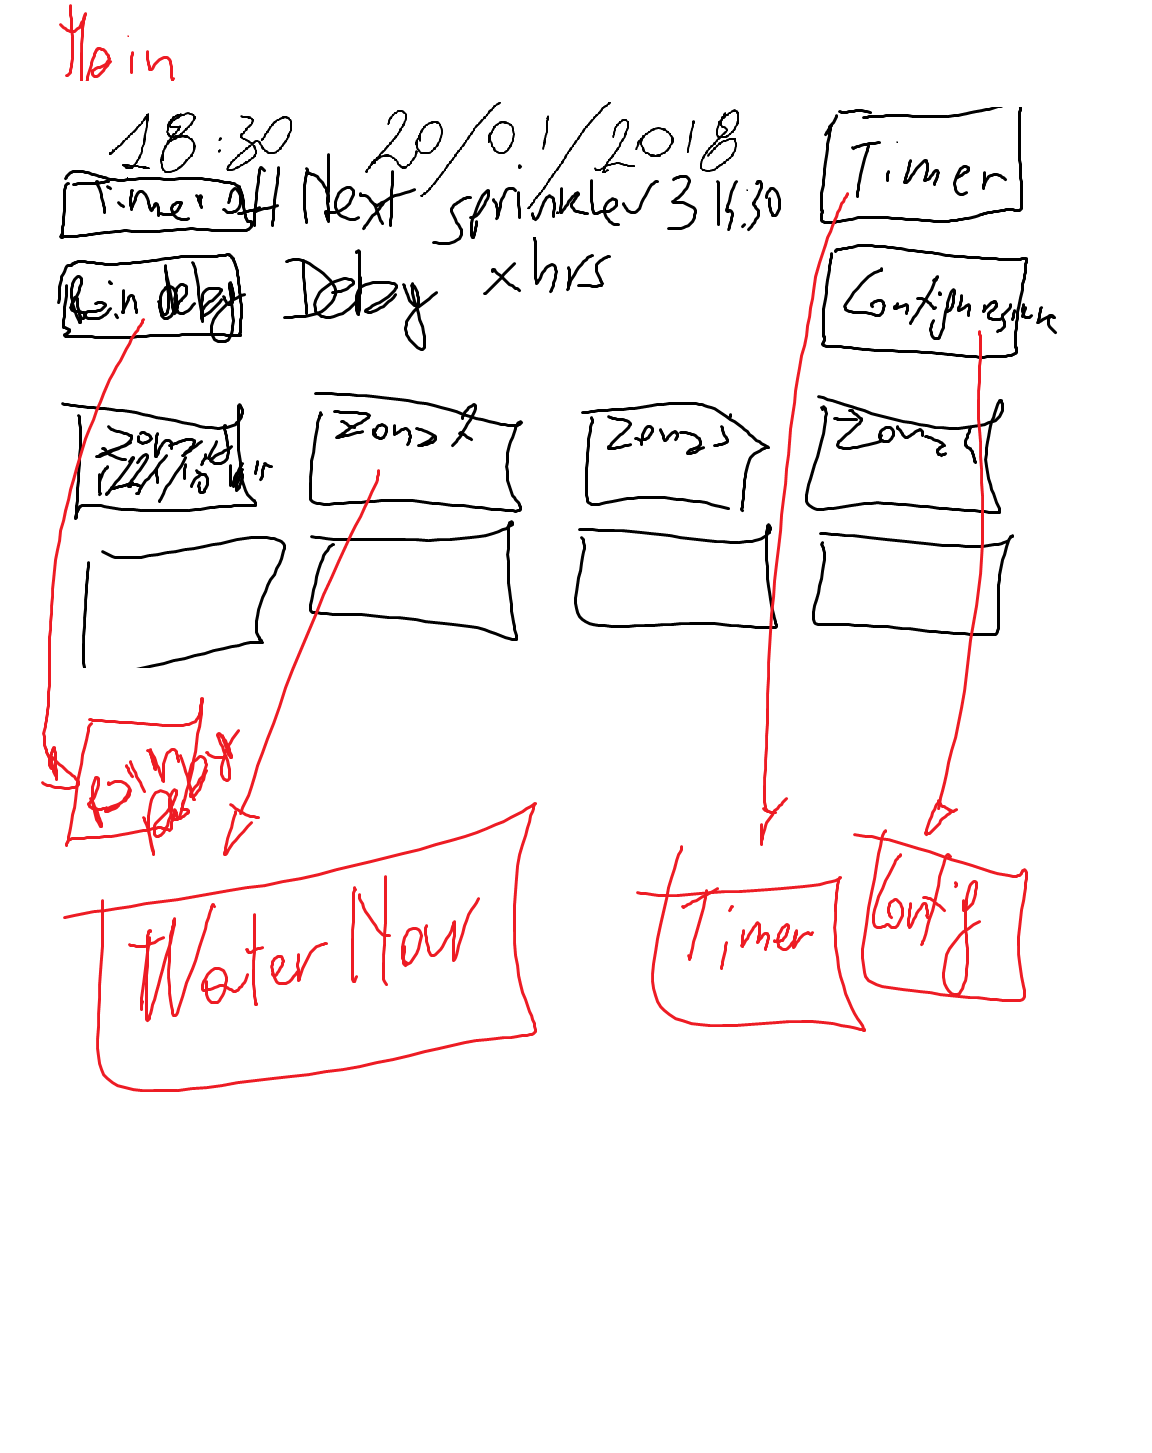 Main
18:30 20/01/2018
Timer
Timer off Next sprinkler 3 15.30
Rain delay Delay x hrs
Configurazione
Zona 2 Zona 3 Zona 4
Rain
Water Now
Timer
Config